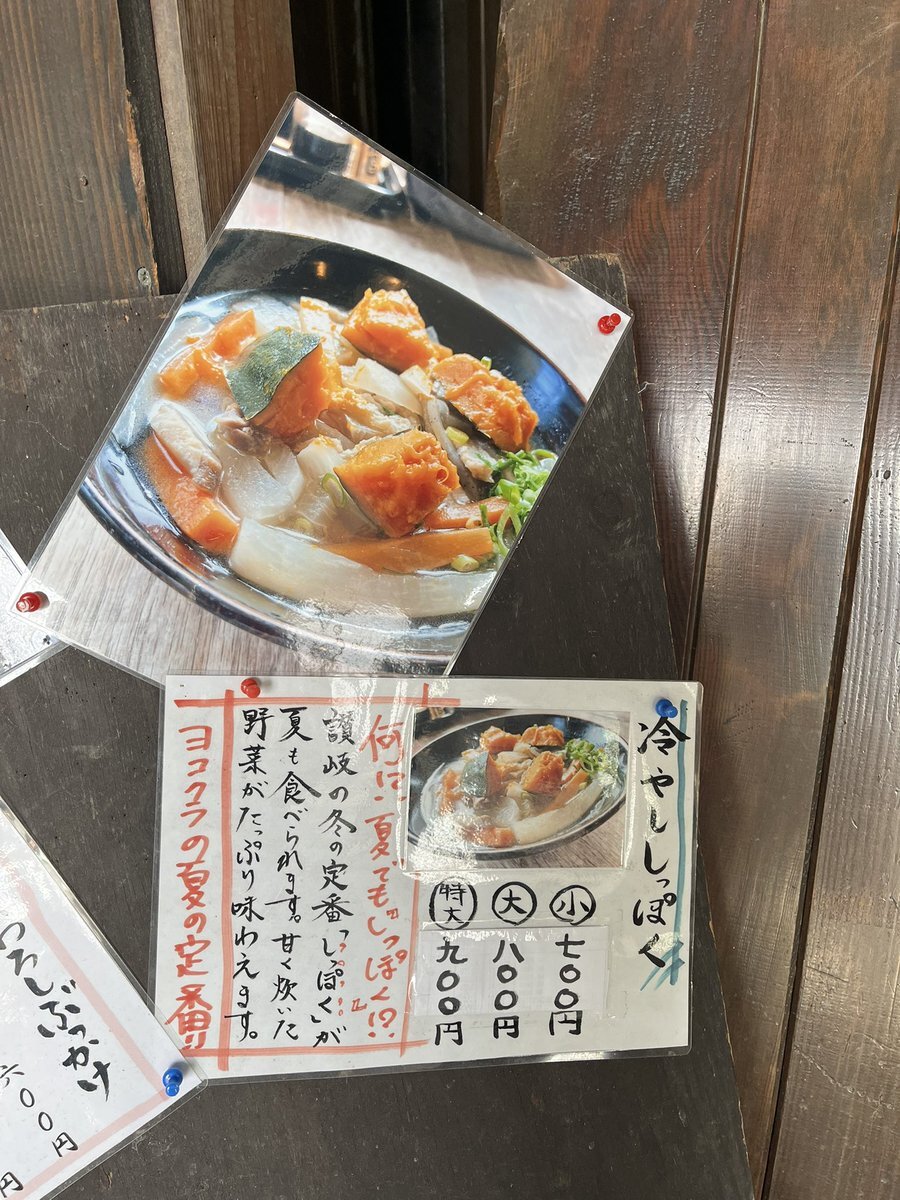 冷やししっぽく
小 七〇〇円
大 八〇〇円
特大 九〇〇円
何に!夏でも『しっぽく』!?
讃岐の冬の定番「しっぽく」が
夏も食べられます。甘く炊いた
野菜がたっぷり味わえます。
ヨコクラの夏の定番!!
ろしぶっかけ
六〇〇円
円